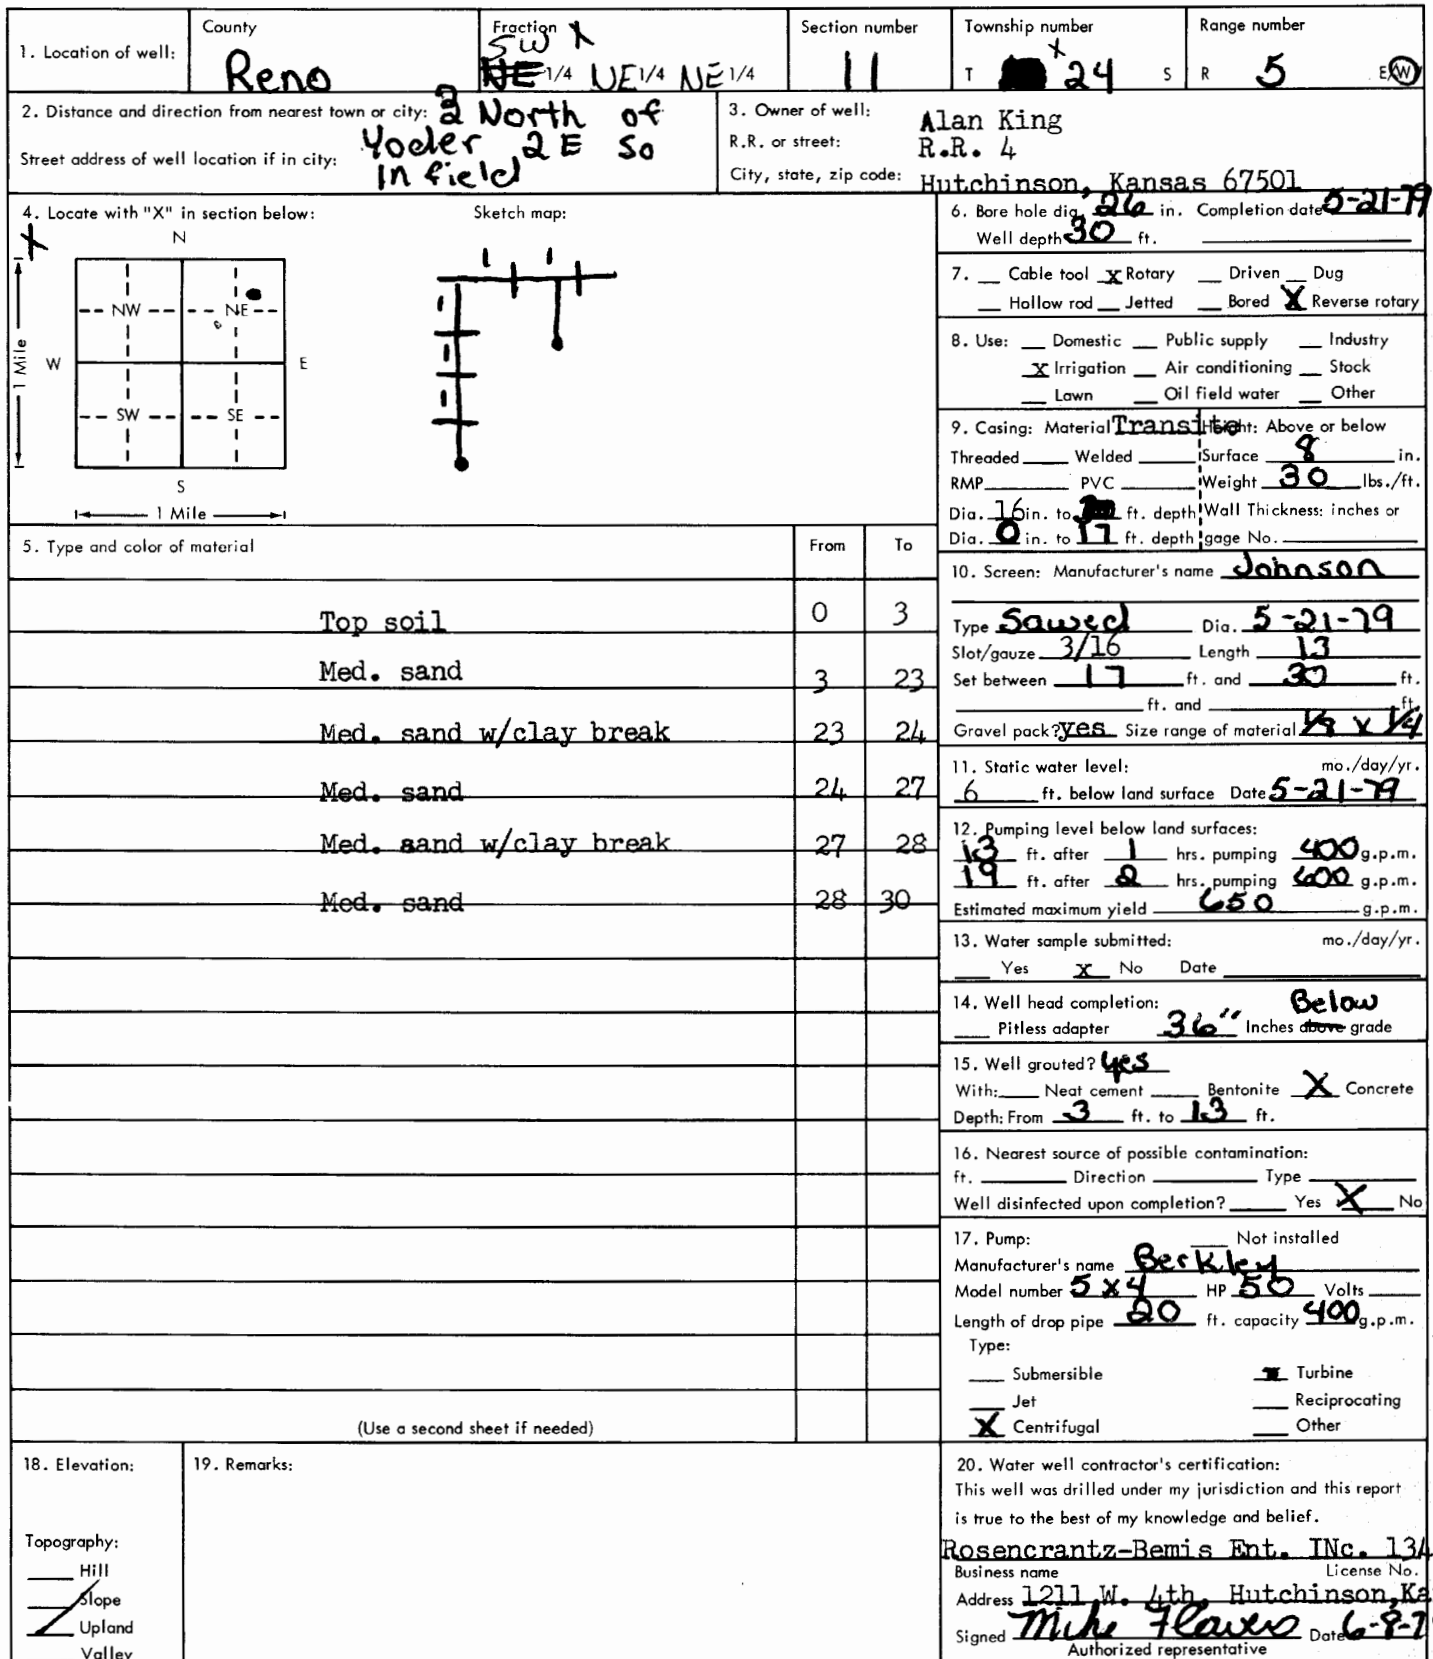 County Fraction Section number Township number Range number
SW X X
1. Location of well: Reno NE 1/4 NE 1/4 NE 1/4 11 T 24 S R 5 E/W
2. Distance and direction from nearest town or city: North of
Yoder 2 E So
Street address of well location if in city: In field
3. Owner of well: Alan King
R.R. or street: R.R. 4
City, state, zip code: Hutchinson, Kansas 67501
4. Locate with "X" in section below: Sketch map:
X
N
NW NE
W E
SW SE
S
1 Mile
1 Mile
5. Type and color of material From To
Top soil 0 3
Med. sand 3 23
Med. sand w/clay break 23 24
Med. sand 24 27
Med. sand w/clay break 27 28
Med. sand 28 30
(Use a second sheet if needed)
6. Bore hole dia. 26 in. Completion date 5-21-79
Well depth 30 ft.
7. Cable tool X Rotary Driven Dug
Hollow rod Jetted Bored X Reverse rotary
8. Use: Domestic Public supply Industry
X Irrigation Air conditioning Stock
Lawn Oil field water Other
9. Casing: Material Transite Height: Above or below
Threaded Welded Surface 8 in.
RMP PVC Weight 30 lbs./ft.
Dia. 16 in. to ft. depth Wall Thickness: inches or
Dia. 0 in. to 17 ft. depth gage No.
10. Screen: Manufacturer's name Johnson
Type Sawed Dia. 5-21-79
Slot/gauze 3/16 Length 13
Set between 17 ft. and 30 ft.
ft. and ft.
Gravel pack? yes Size range of material 1/8 x 1/4
11. Static water level: mo./day/yr.
6 ft. below land surface Date 5-21-79
12. Pumping level below land surfaces:
13 ft. after 1 hrs. pumping 400 g.p.m.
19 ft. after 2 hrs. pumping 600 g.p.m.
Estimated maximum yield 650 g.p.m.
13. Water sample submitted: mo./day/yr.
Yes X No Date
14. Well head completion: Below
Pitless adapter 36" Inches above grade
15. Well grouted? yes
With: Neat cement Bentonite X Concrete
Depth: From 3 ft. to 13 ft.
16. Nearest source of possible contamination:
ft. Direction Type
Well disinfected upon completion? Yes X No
17. Pump: Not installed
Manufacturer's name Berkley
Model number 5 x 4 HP 50 Volts
Length of drop pipe 20 ft. capacity 400 g.p.m.
Type:
Submersible Turbine
Jet Reciprocating
X Centrifugal Other
18. Elevation:
Topography:
Hill
Slope
Upland
Valley
19. Remarks:
20. Water well contractor's certification:
This well was drilled under my jurisdiction and this report
is true to the best of my knowledge and belief.
Rosencrantz-Bemis Ent. INc. 134
Business name License No.
Address 1211 W. 4th, Hutchinson, Ka
Signed Mike Flowers Date 6-8-7
Authorized representative